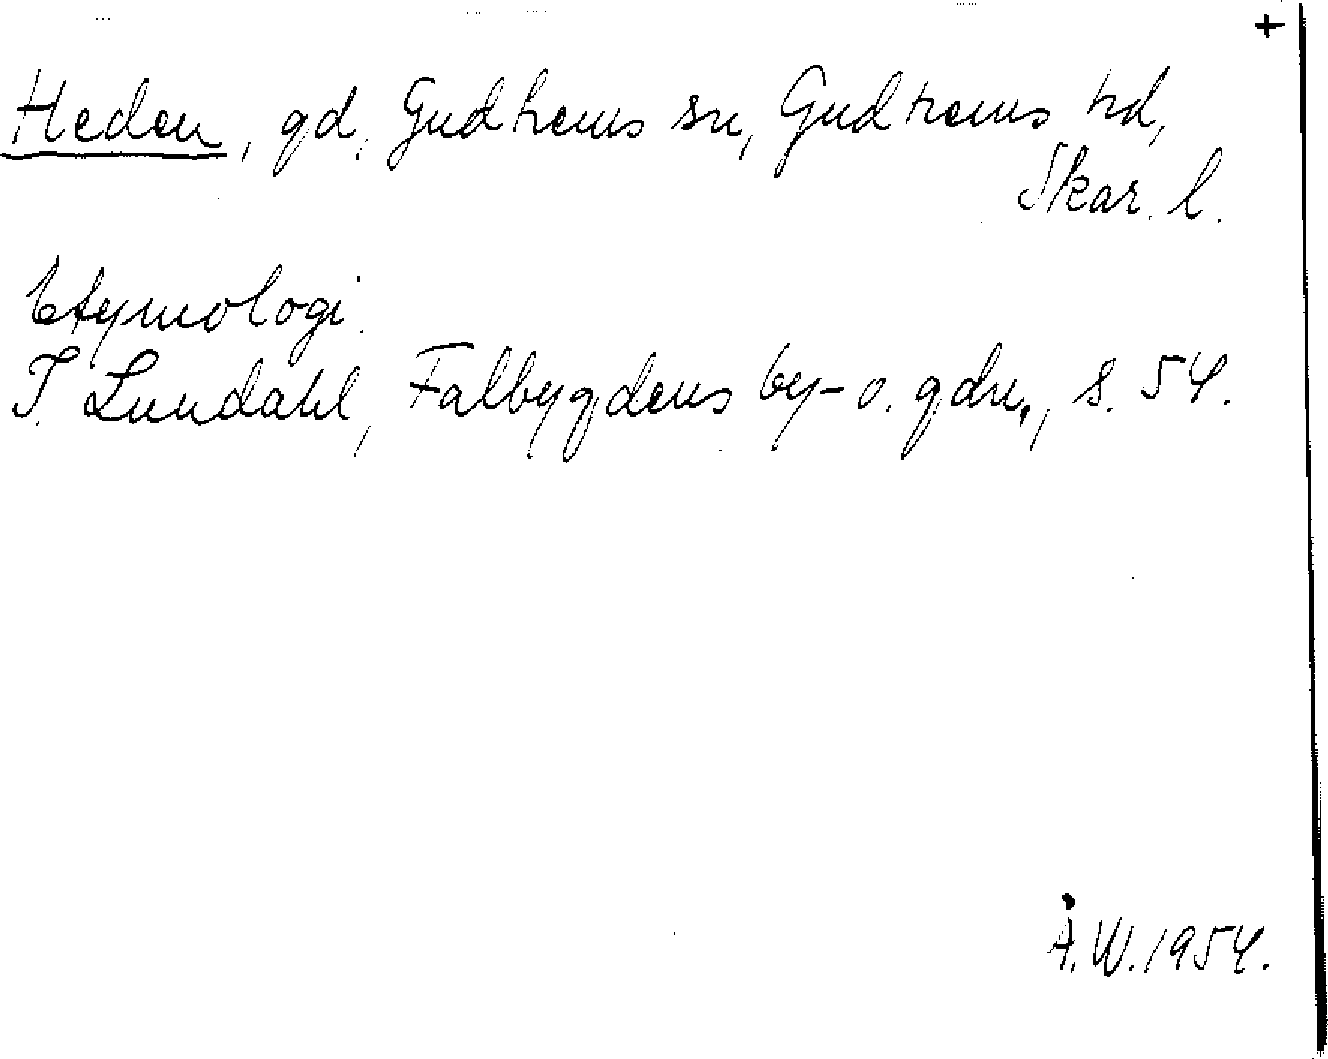 +
Heden, gd, Gudhems sn, Gudhems hd,
Skar. l.
Etymologi.
I. Lundahl, Falbygdens by- o. gdn., s. 54.
Å.W. 1954.